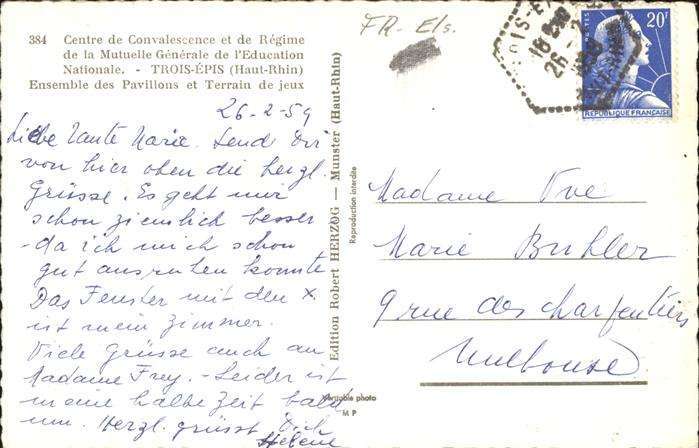 384 Centre de Convalescence et de Régime
de la Mutuelle Générale de l'Education
Nationale. - TROIS-ÉPIS (Haut-Rhin)
Ensemble des Pavillons et Terrain de jeux
26-2-59
Liebe Tante Marie. Sende Dir
von hier oben die herzl.
Grüsse. Es geht mir
schon ziemlich besser
- da ich mich schon
gut ausruhen konnte
Das Fenster mit den x
ist mein Zimmer.
Viele Grüsse auch an
Madame Frey. - Leider ist
meine halbe Zeit bald
um. Herzl. grüsst Dich
Helene
Edition Robert HERZOG — Munster (Haut-Rhin)
Reproduction interdite
Véritable photo
M P
FR-Els.
POSTES
20F
REPUBLIQUE FRANÇAISE
18
26
Madame Vve
Marie Buhler
9 rue des charpentiers
Mulhouse